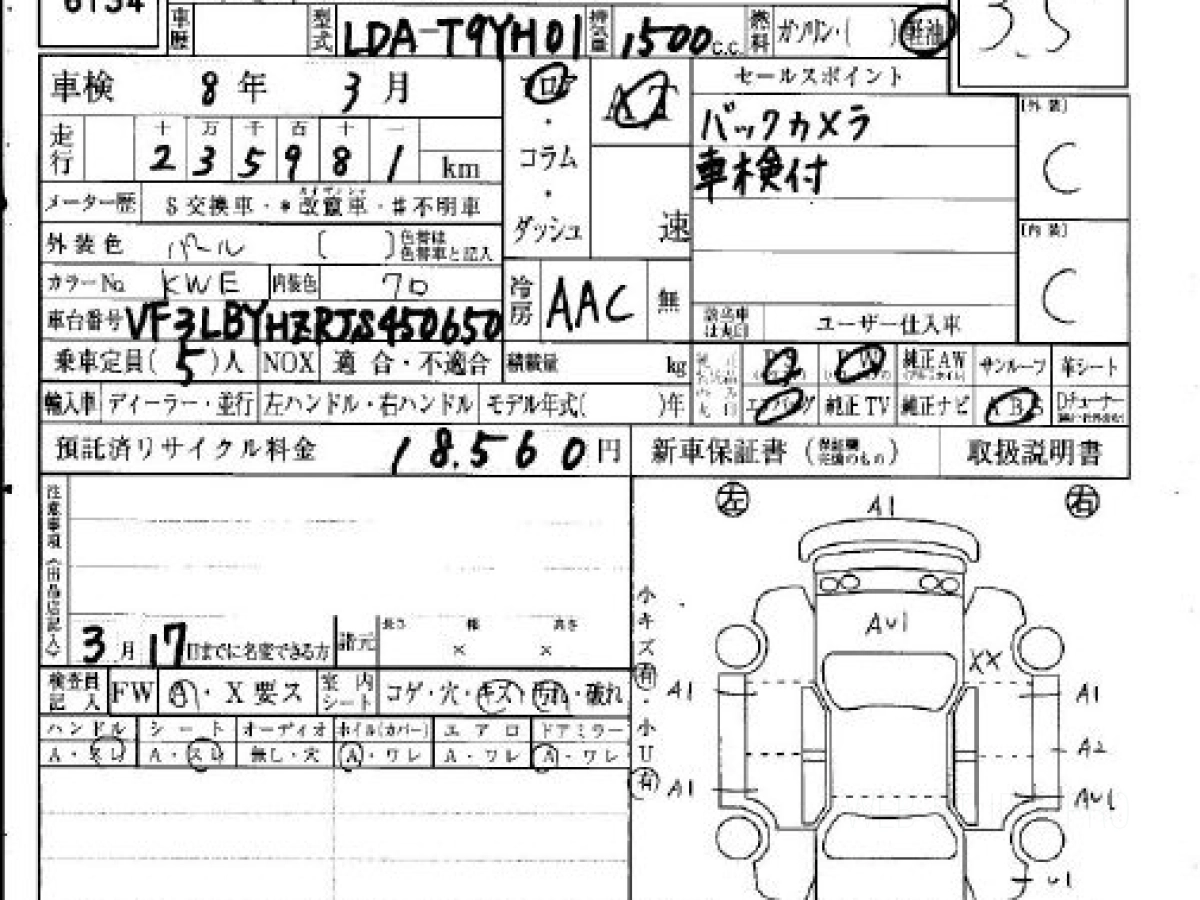 6134
車歴 型式 LDA-T9YH01 排気量 1,500 c.c. 燃料 ガソリン・( ) 軽油
3.5
車検 8年 3月
フロア・コラム・ダッシュ
AT
速
セールスポイント
バックカメラ
車検付
[外装]
C
[内装]
C
走行 十 万 千 百 十 一
2 3 5 9 8 1 km
メーター歴 S交換車・*改竄車・#不明車
外装色 パール ( ) 色替は色替車と記入
カラーNo. KWE 内装色 70
冷房 AAC 無
ユーザー仕入車
車台番号 VF3LBYHZRJS450650
乗車定員( 5 )人 NOX 適合・不適合 積載量 kg
PS PW 純正AW サンルーフ 革シート
輸入車 ディーラー・並行 左ハンドル・右ハンドル モデル年式( )年
エアバッグ 純正TV 純正ナビ ABS Dチューナー
預託済リサイクル料金 18.560円
新車保証書 取扱説明書
注意事項(出品店記入)
左 A1 右
3月17日までに名変できる方 諸元 長さ × 幅 × 高さ
小キズ 有・小U 有
AU1
XX
検査員記入 FW X要ス 室内シート コゲ・穴・キズ・汚れ・破れ
A1 A1
ハンドル シート オーディオ ホイル(カバー) エアロ ドアミラー
A・スレ A・スレ 無し・欠 A・ワレ A・ワレ A・ワレ
A2
A1 AU1
U1